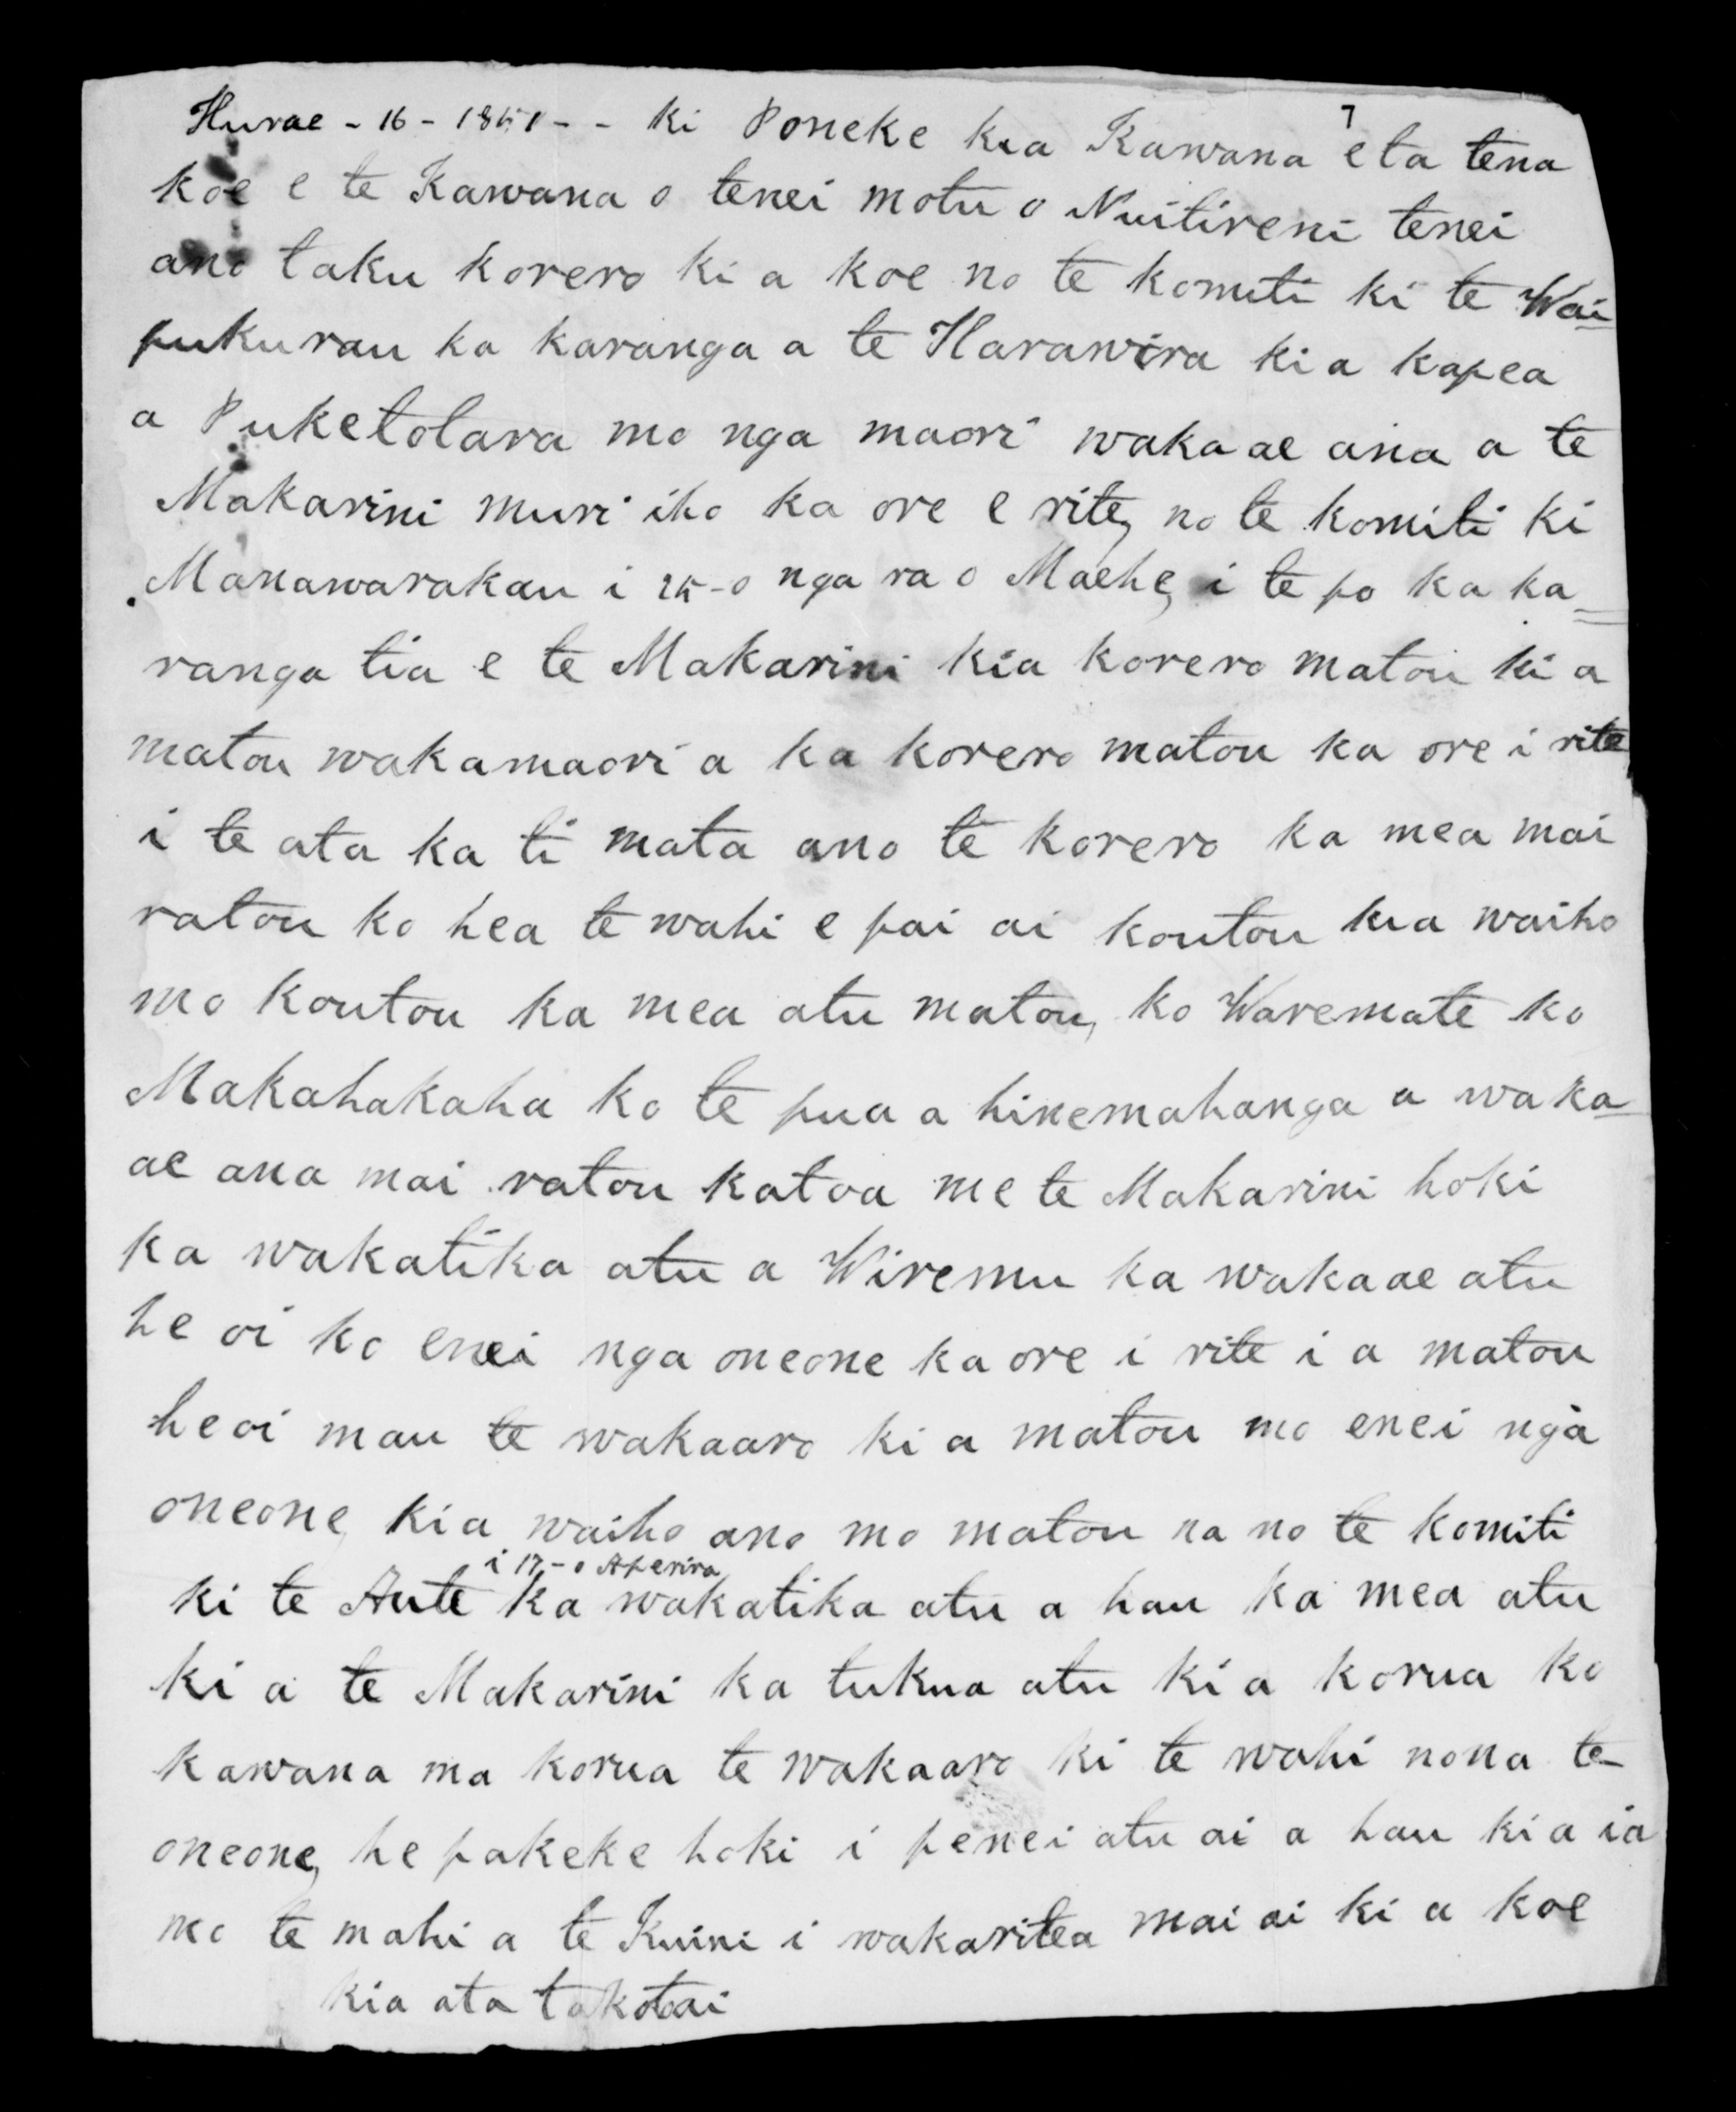 7
Hurae - 16 - 1851 - - ki Poneke kia Kawana e ta tena
koe e te Kawana o tenei motu o Nuitireni tenei
ano taku korero ki a koe no te komiti ki te Wai-
pukurau ka karanga a te Harawira ki a kapea
a Puketotara mo nga maori wakaae ana a te
Makarini muri iho ka ore e rite, no te komiti ki
Manawarakau i 25 - o nga ra o Maehe, i te po ka ka=
ranga tia e te Makarini kia korero matou ki a
matou wakamaori a ka korero matou ka ore i rite,
i te ata ka ti mata ano te korero ka mea mai
ratou ko hea te wahi e pai ai koutou kia waiho
mo koutou ka mea atu matou, ko Waremate ko
Makahakaha ko te pua a hinemahanga a waka-
ae ana mai ratou katoa me te Makarini hoki
ka wakatika atu a Wiremu ka wakaae atu
he oi ko enei nga oneone ka ore i rite i a matou
he oi mau te wakaaro ki a matou mo enei nga
oneone, kia waiho ano mo matou na no te komiti
i 17 - o Aperira
ki te Aute ka wakatika atu a hau ka mea atu
ki a te Makarini ka tukua atu ki a korua ko
kawana ma korua te wakaaro ki te wahi nona te
oneone, he pakeke hoki i penei atu ai a hau ki a ia
mo te mahi a te Kuini i wakaritea mai ai ki a koe
kia ata takoto ai